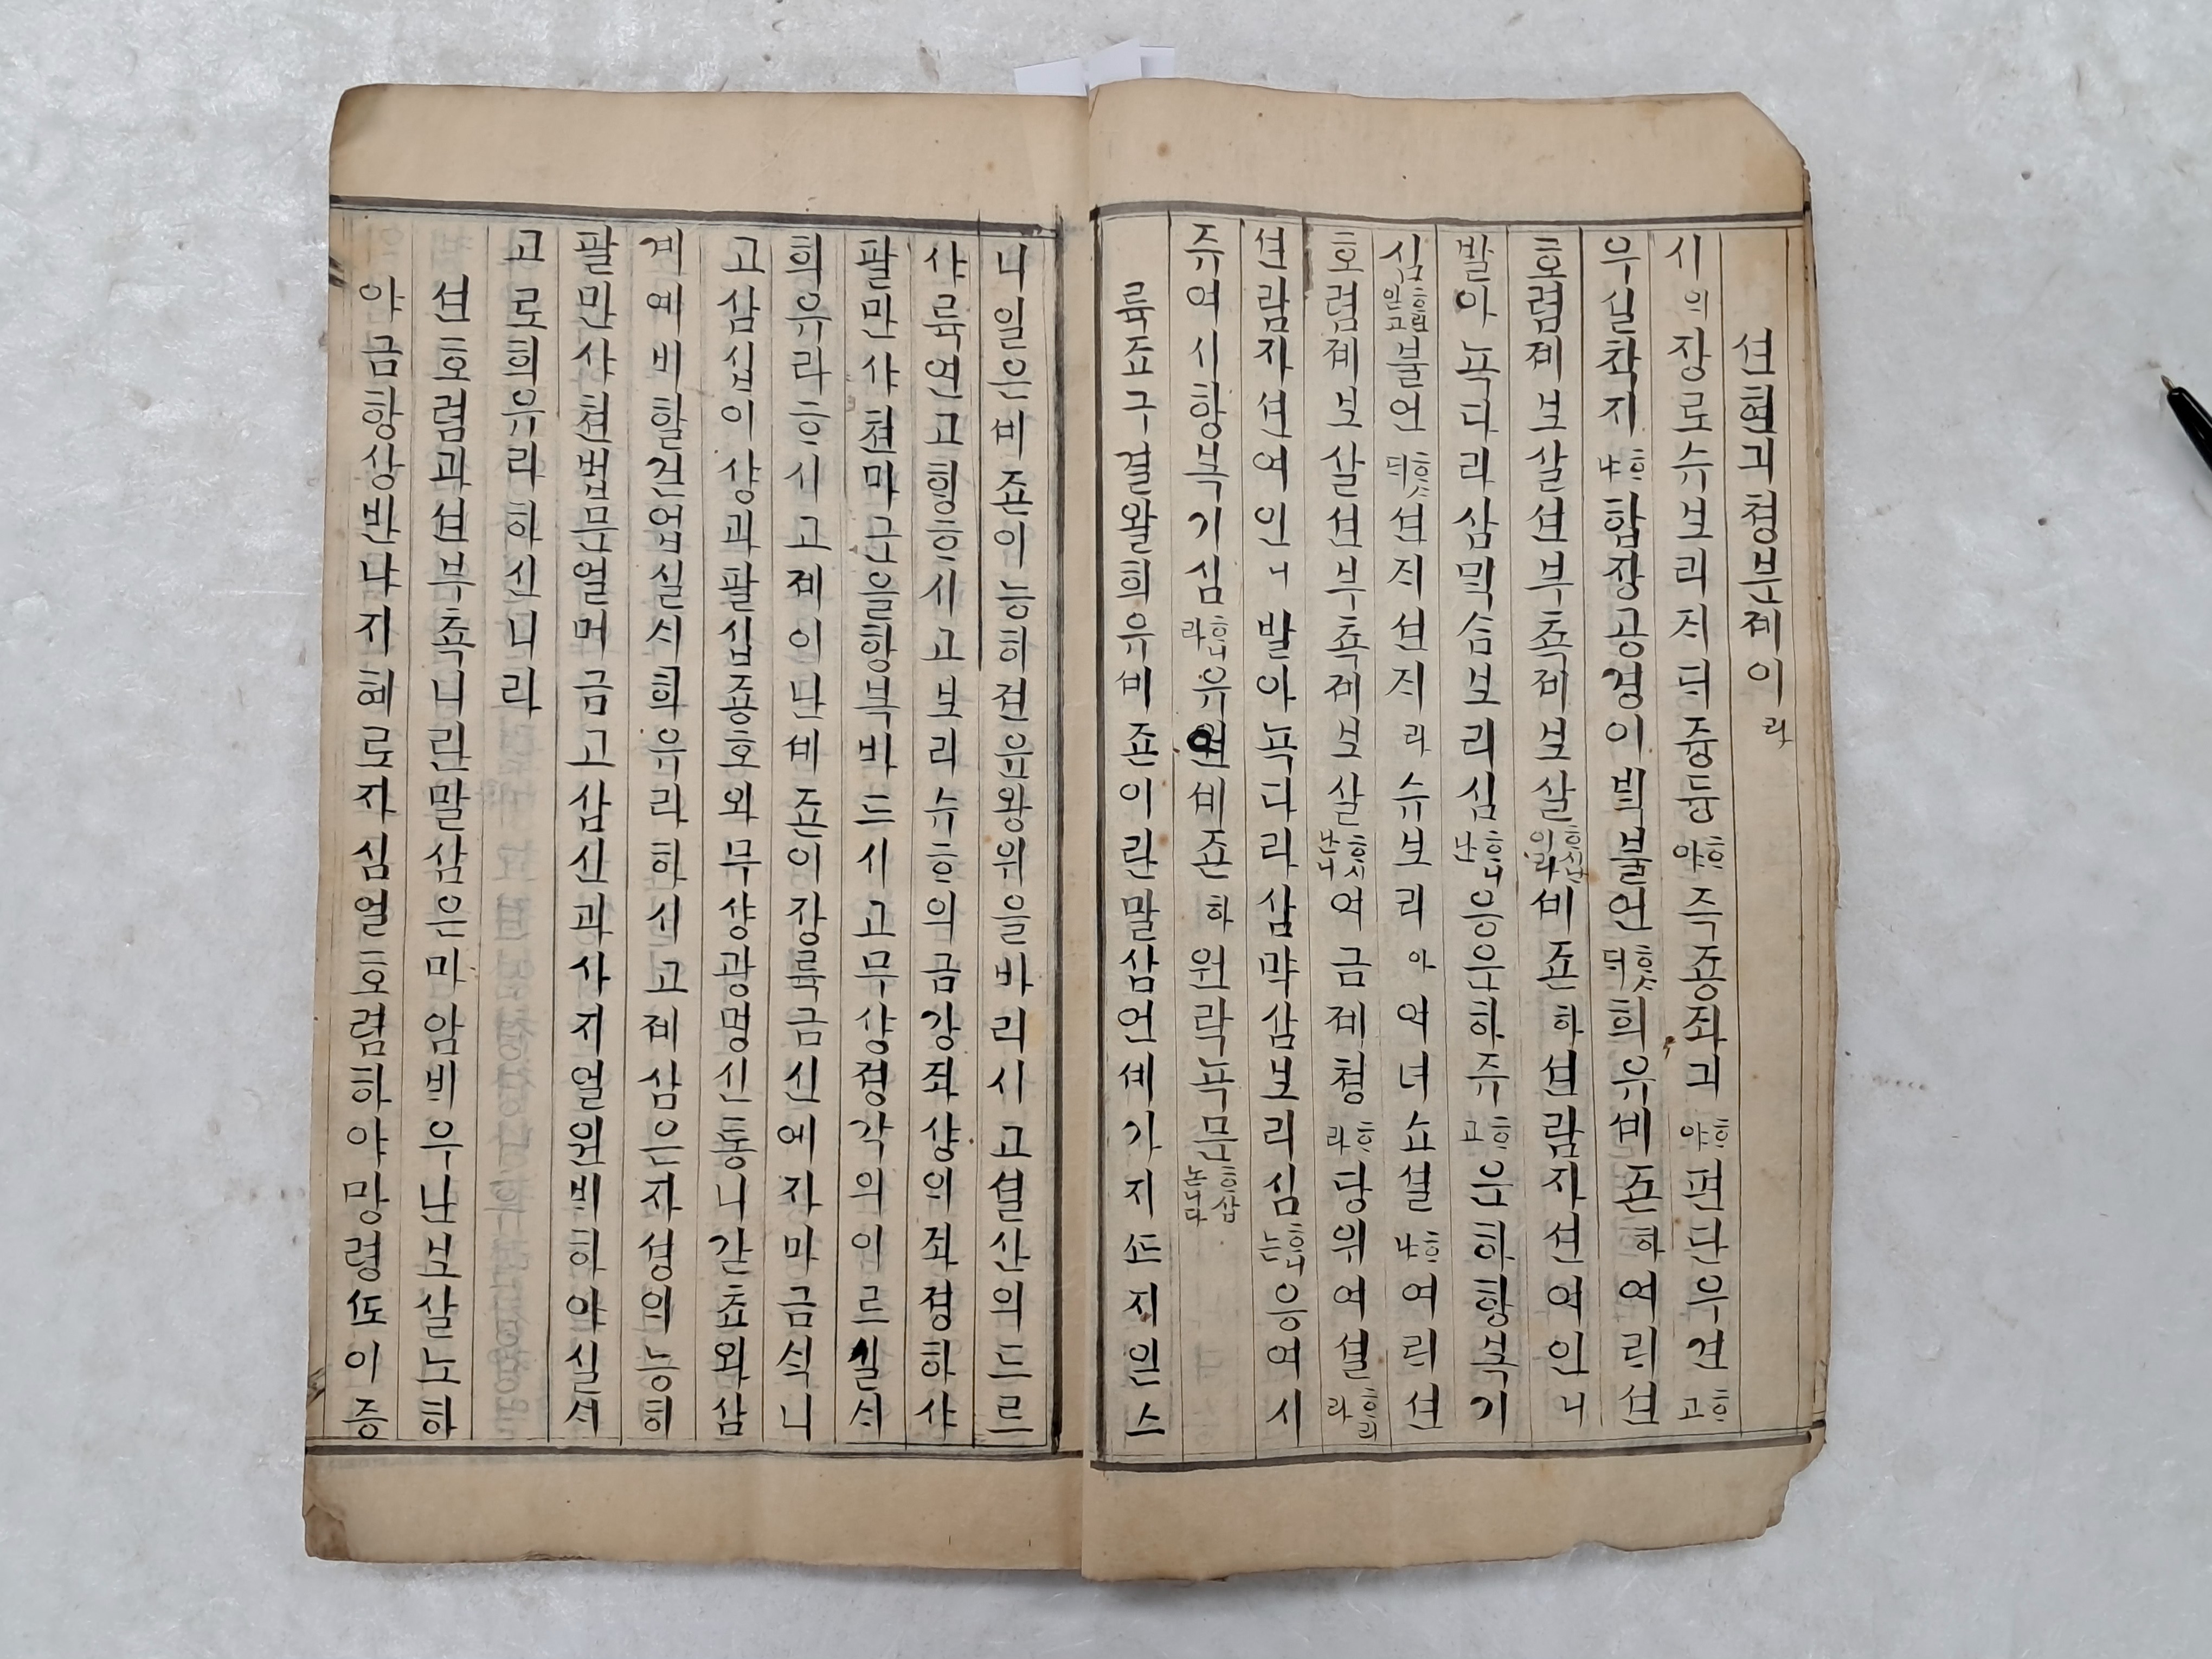 션현긔쳥분졔이라
시의쟝로슈보리지ᄃᆡ즁듕ᄒᆞ야즉죵좌긔ᄒᆞ야편단우견ᄒᆞ고
우실착지ᄒᆞ냐합쟝공경이ᄇᆡᆨ불언ᄒᆞᄉᆞᄃᆡ희유셰죤하여ᄅᆡ션
호렴졔보살션부쵹졔보살ᄒᆞ십이라셰죤하션람자션여인니
발아뇩다라삼ᄆᆡᆨ슴보리심ᄒᆞ니난응운하쥬ᄒᆞ고운하항복기
심ᄒᆞ림일고불언ᄒᆞᄉᆞᄃᆡ션ᄌᆡ션ᄌᆡ라슈보리아여녀쇼셜ᄒᆞ냐여ᄅᆡ션
호렴졔보살션부쵹졔보살ᄒᆞ시난니여금졔쳥ᄒᆞ라당위여셜ᄒᆞ리라
션람자션여인니발아뇩다라삼막삼보리심ᄒᆞ니는응여시
쥬여시항복기심ᄒᆞ니라유연셰죤하원락뇩문ᄒᆞ삽논니다
륙죠구결왈희유셰죤이란말삼언셰가지ᄯᅳ지인ᄉᆞ
니일은셰죤이능히젼윤왕위을바리시고셜산의드르
샤륙연고ᄒᆡᆼᄒᆞ시고보리슈ᄒᆞ의금강좌샹의좌졍하샤
팔만사쳔마군을항복바드시고무샹졍각의이르실ᄉᆡ
희유라ᄒᆞ시고졔이난셰죤이쟝륙금신에자마금ᄉᆡᆨ니
고삼십이샹과팔십죵호와무샹광명신통니갇쵸와삼
계예비할건업실ᄉᆡ희유라하시고졔삼은자셩의능히
팔만사쳔법문얼머금고삼신과사지얼원비하야실ᄉᆡ
고로희유라하신니라
션호렴과션부쵹니란말삼은마암ᄇᆡ우난보살노하
야금항상반냐지혜로자심얼호렴하야망령도이증